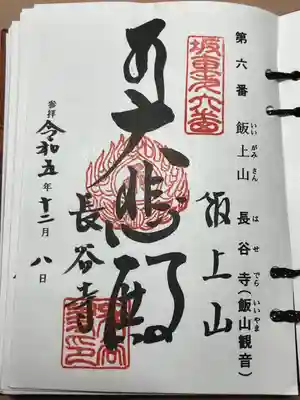 第六番 飯上山 長谷寺(飯山観音)
いいがみさん はせでら いいやま
坂東第六番
飯上山
大悲殿
長谷寺
参拝 令和五年十二月八日